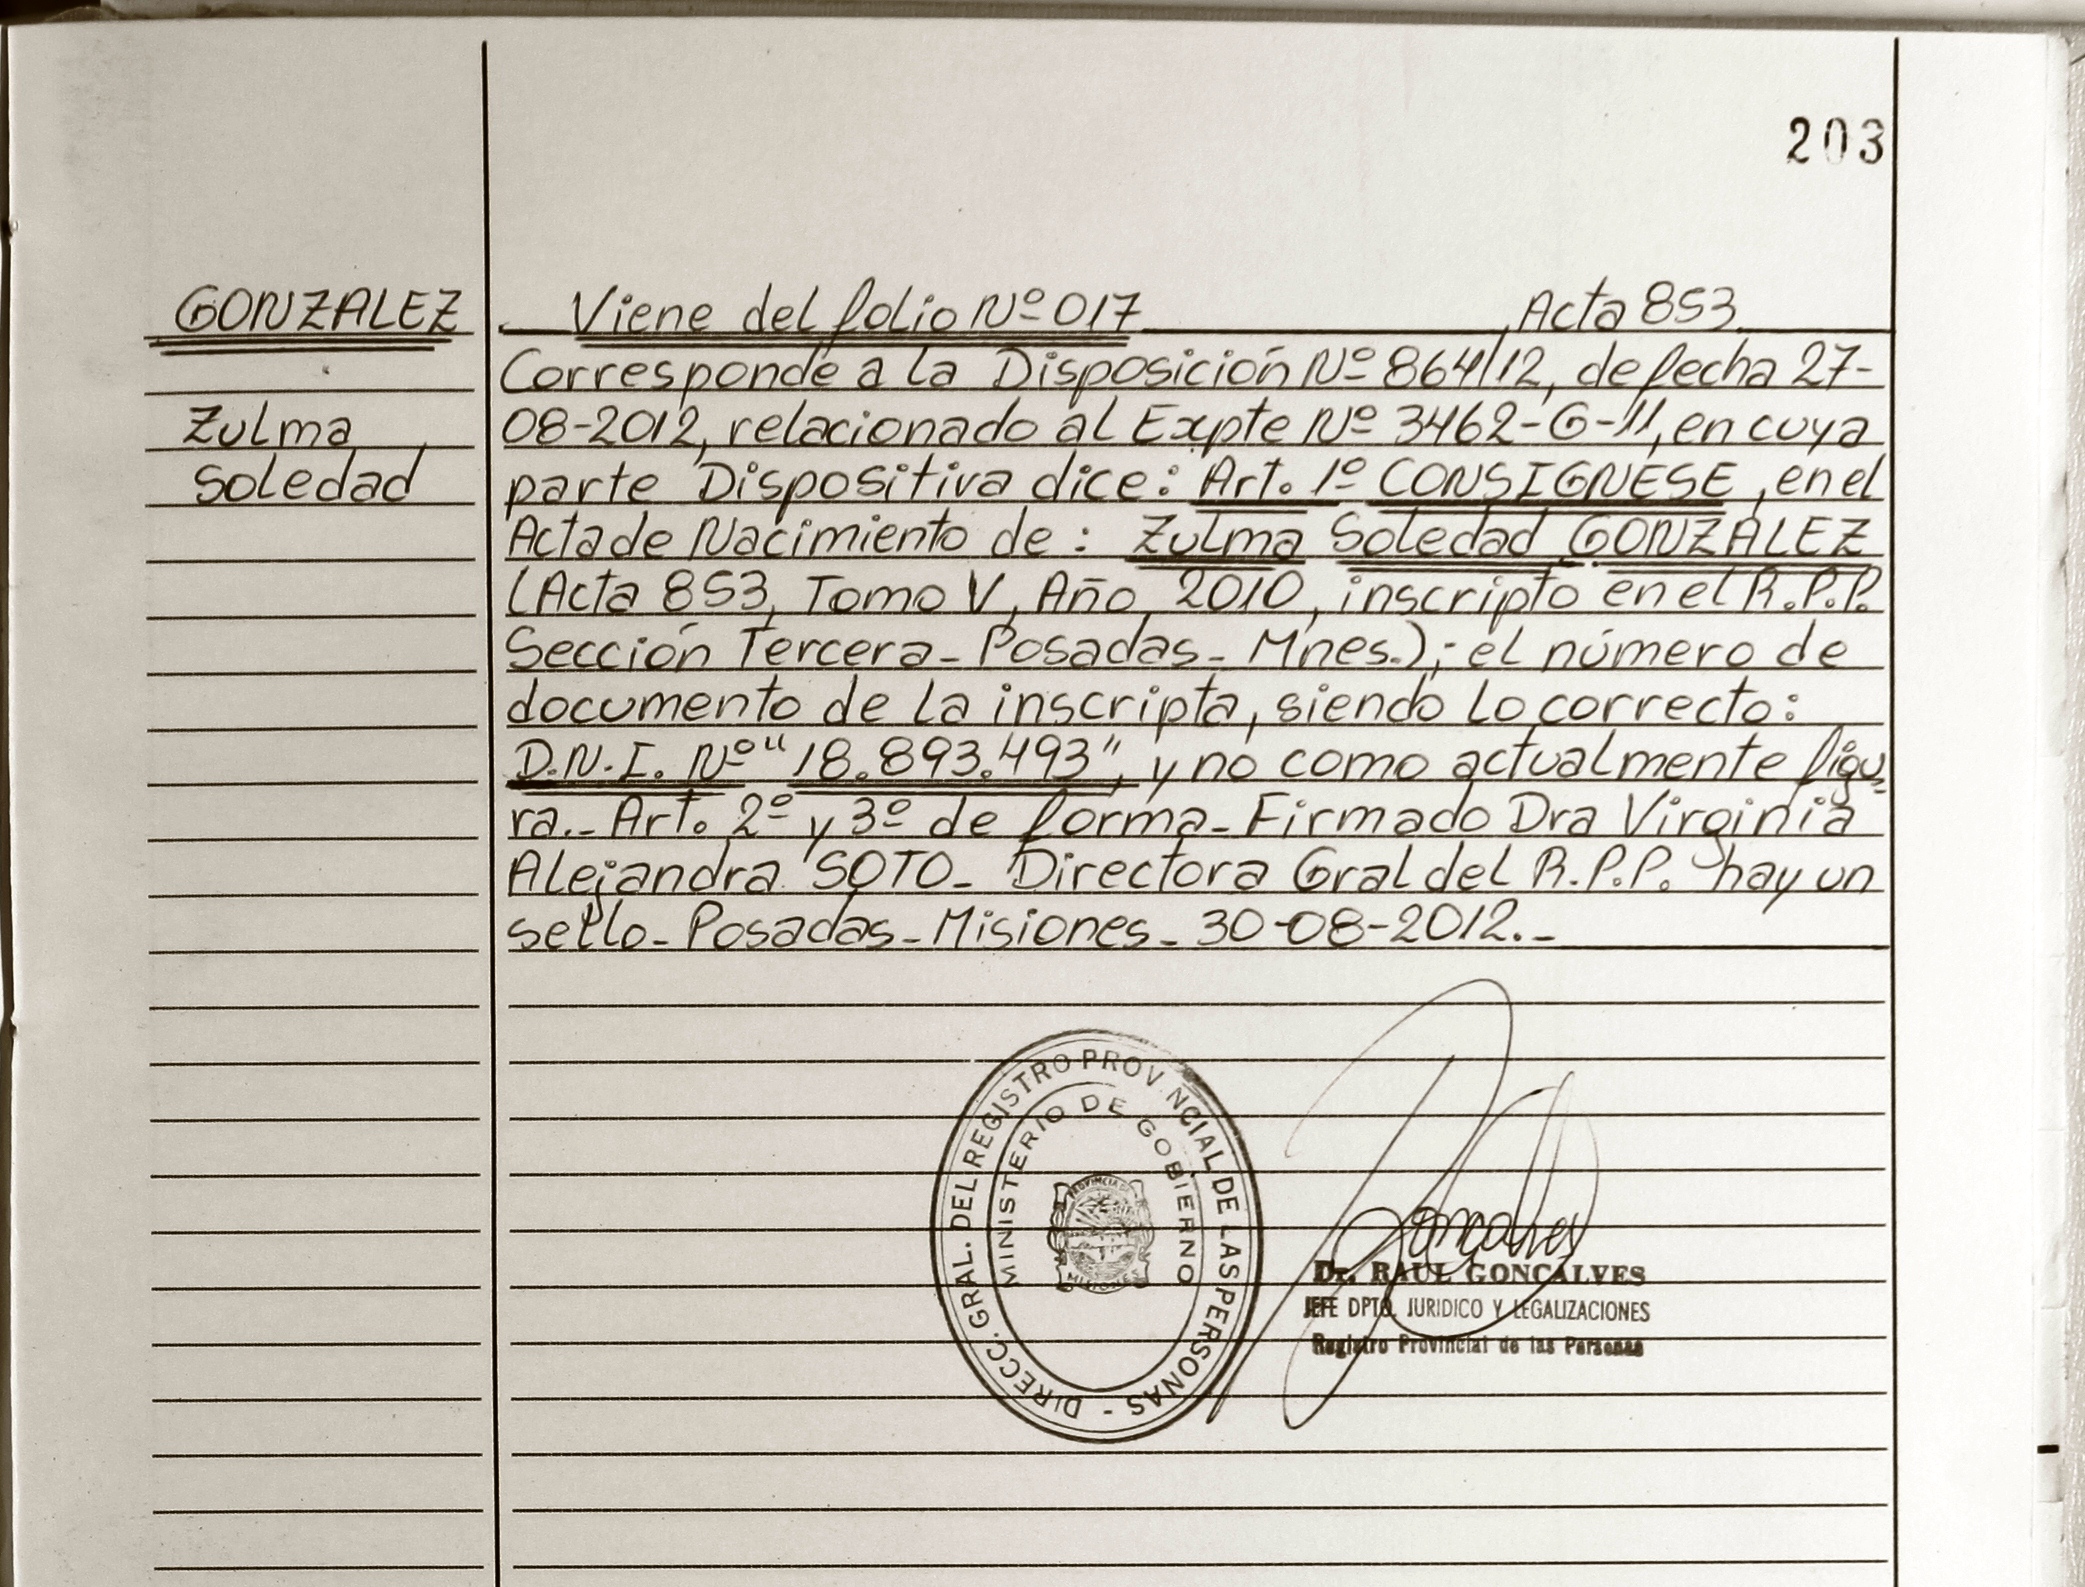 203
GONZALEZ
Zulma
Soledad
Viene del folio Nº 017 Acta 853
Corresponde a la Disposición Nº 864/12, de fecha 27-
08-2012, relacionado al Expte Nº 3462-G-11, en cuya
parte Dispositiva dice: Art. 1º CONSIGNESE, en el
Acta de Nacimiento de: Zulma Soledad GONZALEZ
(Acta 853, Tomo V, Año 2010, inscripto en el R.P.P.
Sección Tercera - Posadas - Mnes.); el número de
documento de la inscripta, siendo lo correcto:
D.N.I. Nº "18.893.493", y no como actualmente figu-
ra.- Art. 2º y 3º de forma - Firmado Dra Virginia
Alejandra SOTO - Directora Gral del R.P.P. hay un
sello - Posadas - Misiones - 30-08-2012.-
DIRECC. GRAL. DEL REGISTRO PROVINCIAL DE LAS PERSONAS -
MINISTERIO DE GOBIERNO
PROVINCIA DE
MISIONES
Goncalves
Dr. RAUL GONCALVES
JEFE DPTO. JURIDICO Y LEGALIZACIONES
Registro Provincial de las Personas